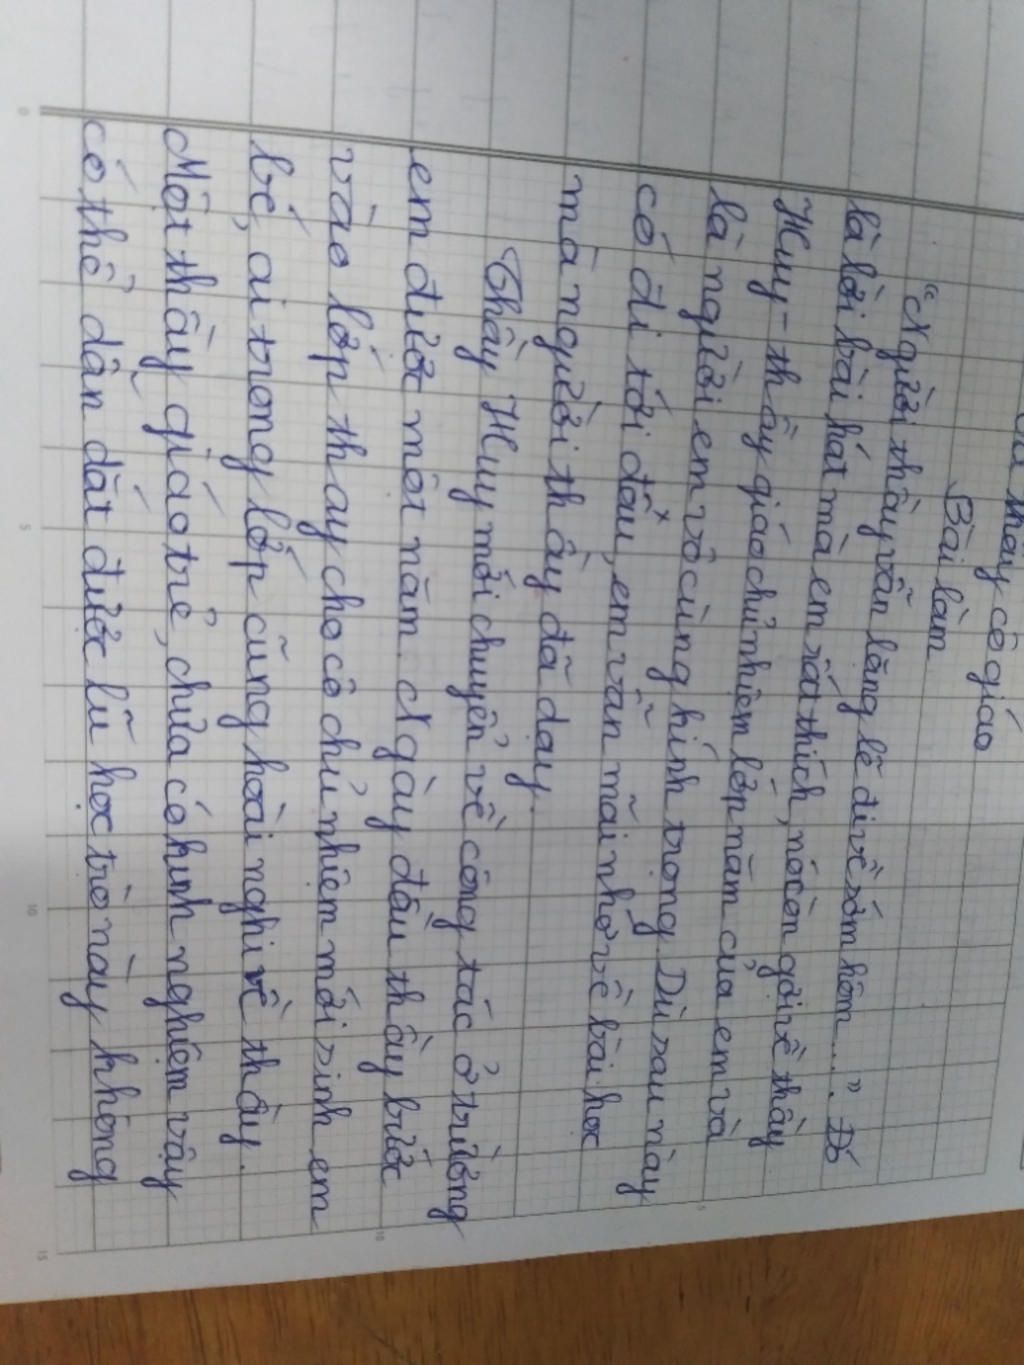 thầy cô giáo
Bài làm
"Người thầy vẫn lặng lẽ đi về sớm hôm...". Đó
là lời bài hát mà em rất thích, nó còn gợi về thầy
Huy - thầy giáo chủ nhiệm lớp năm của em và
là người em vô cùng kính trọng. Dù sau này
có đi tới đâu, em vẫn mãi nhớ về bài học
mà người thầy đã dạy.
Thầy Huy mới chuyển về công tác ở trường
em được một năm. Ngày đầu thầy bước
vào lớp thay cho cô chủ nhiệm mới sinh em
bé, ai trong lớp cũng hoài nghi về thầy.
Một thầy giáo trẻ, chưa có kinh nghiệm vậy
có thể dẫn dắt được lũ học trò này không